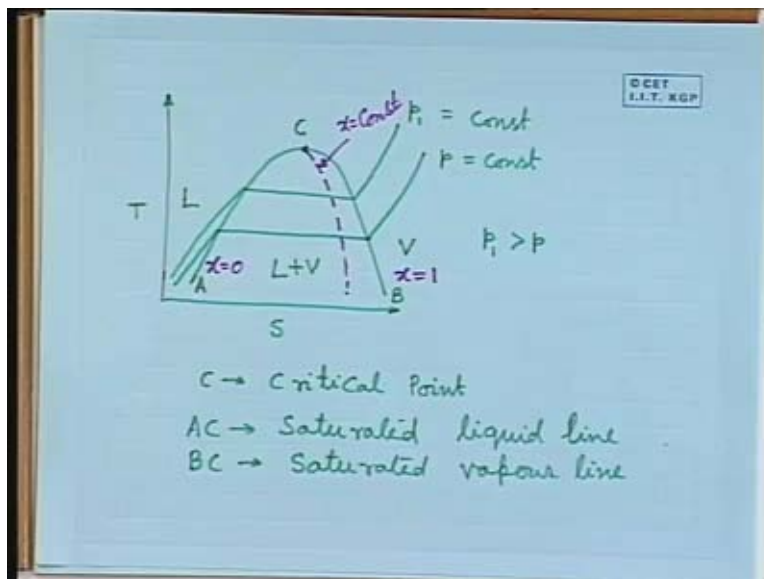 © CET
I.I.T. KGP
C
x=Const
p₁ = Const
p = Const
T
L
p₁ > p
V
x=0
L+V
x=1
A
B
S
C → Critical Point
AC → Saturated liquid line
BC → Saturated vapour line